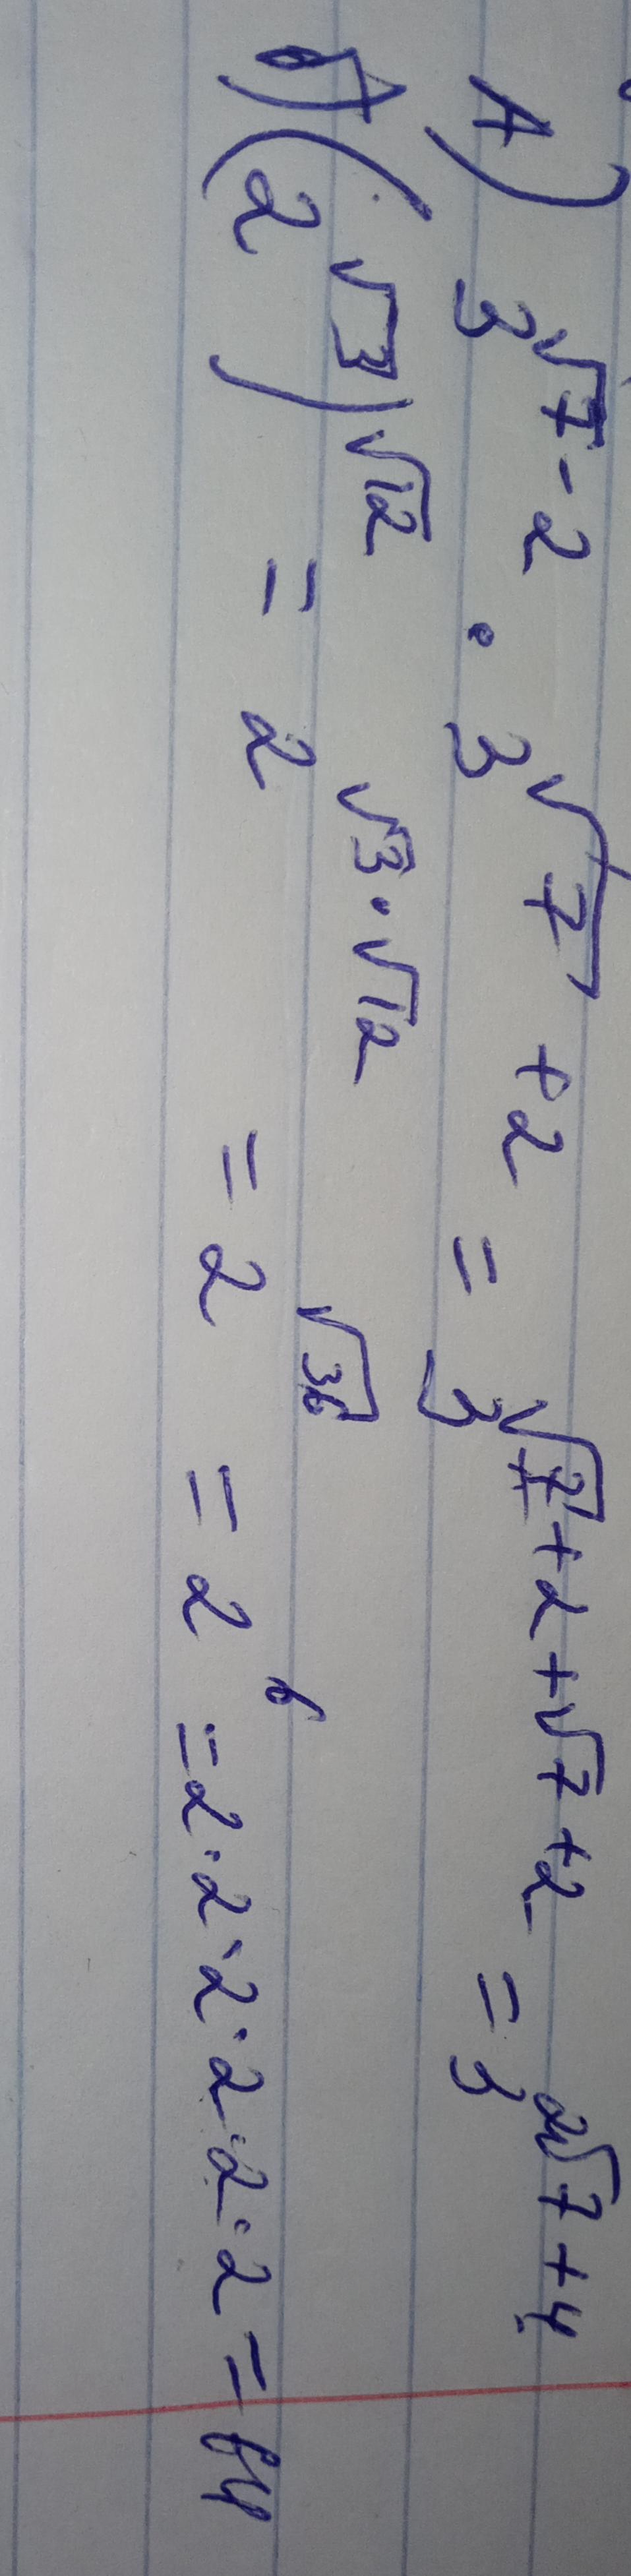 А) 3^{√7-2} · 3^{√7+2} = 3^{√7+2+√7+2} = 3^{2√7+4}
б) (2^{√3})^{√12} = 2^{√3·√12} = 2^{√36} = 2^6 = 2·2·2·2·2·2 = 64